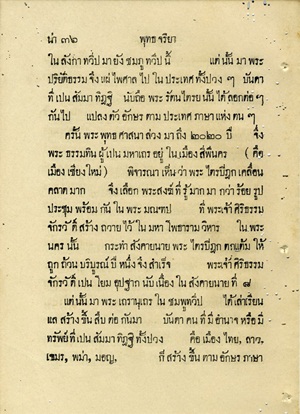 น่า ๓๖ พุทธ จริยา
ใน ลังกา ทวีป มา ยัง ชมภู ทวีป นี้ แต่ นั้น มา พระ
ปริยัติธรรม จึง แผ่ ไพศาล ไป ใน ประเทศ ทั้งปวง ๆ บันดา
ที่ เปน สัมมา ทิฏฐิ นับถือ พระ รัตน ไตรย นั้น ได้ ลอกต่อ ๆ
กันไป แปลง ตัว อักษร ตาม ประเทศ ภาษา แห่ง ตน ๆ
ครั้น พระ พุทธ ศาสนา ล่วง มา ถึง ๒๐๒๐ ปี จึ่ง
พระ ธรรมทิน ผู้ เปน มหาเถร อยู่ ใน เมือง ศีพินคร ( คือ
เมือง เชียง ใหม่ ) พิจารณา เห็น ว่า พระ ไตร ปิฎก เคลื่อน
คลาศ มาก จึ่ง เลือก พระสงฆ์ ที่ รู้ มาก มา กว่า ร้อย รูป
ประชุม พร้อม กัน ใน พระ มณฑป ที่ พระเจ้า ศิริธรรม
จักรวัติ ที่ สร้าง ถวาย ไว้ ใน มหา โพธาราม วิหาร ใน พระ
นคร นั้น กระทำ สังคายนาย พระ ไตรปิฎก ตกแต้ม ให้
ถูก ถ้วน บริบูรณ์ ปี หนึ่ง จึ่ง สำเร็จ พระเจ้า ศิริธรรม
จักรวัติ เปน ไยม อุปฐาก นับ เนื่อง ใน สังคายนาย ที่ ๘
แต่ นั้น มา พระ เถรานุเถร ใน ชมพูทวีป ได้ เล่าเรียน
แล สร้าง ขึ้น สืบ ต่อ กันมา บันดา คน ที่ มี อำนาจ หรือ มี
ทรัพย์ ที่ เปน สัมมา ทิฏฐิ ทั้งปวง คือ เมือง ไทย, ลาว,
เขมร, พม่า, มอญ, ก็ สร้าง ขึ้น ตาม อักษร ภาษา